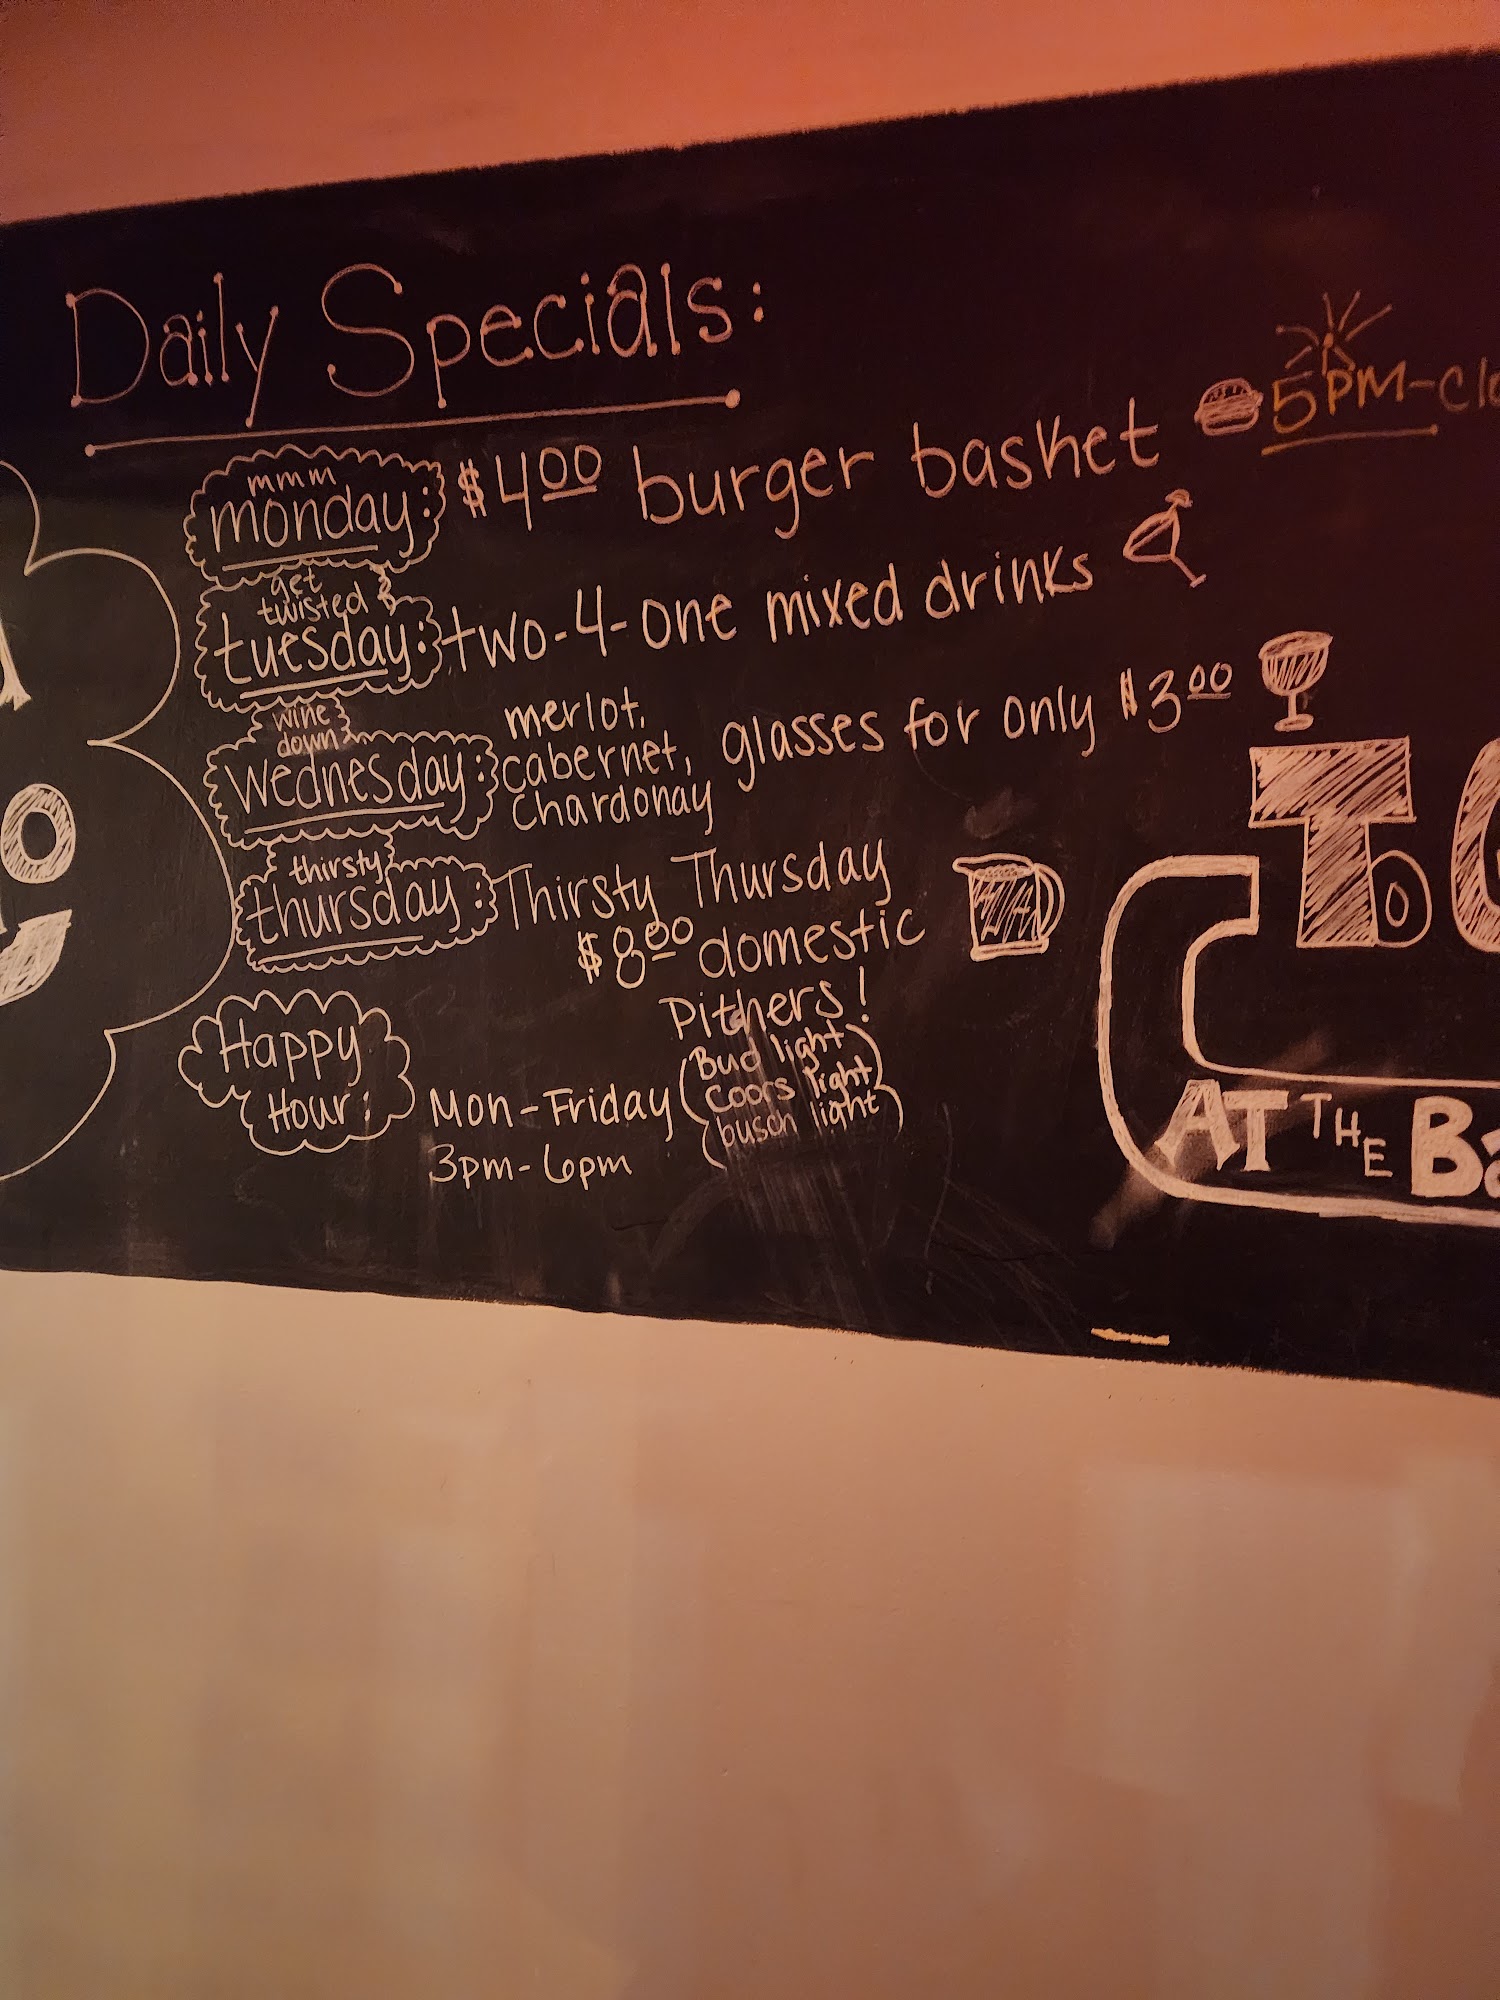 Daily Specials:
mmm
monday: $4.00 burger basket 5PM-clo
get
twisted
tuesday: two-4-one mixed drinks
wine
down
wednesday: merlot, cabernet, chardonay glasses for only $3.00
thirsty
thursday: Thirsty Thursday
$8.00 domestic
Pithers!
(Bud light
Coors light
busch light)
Happy
Hour: Mon-Friday
3pm-6pm
To
AT THE Ba